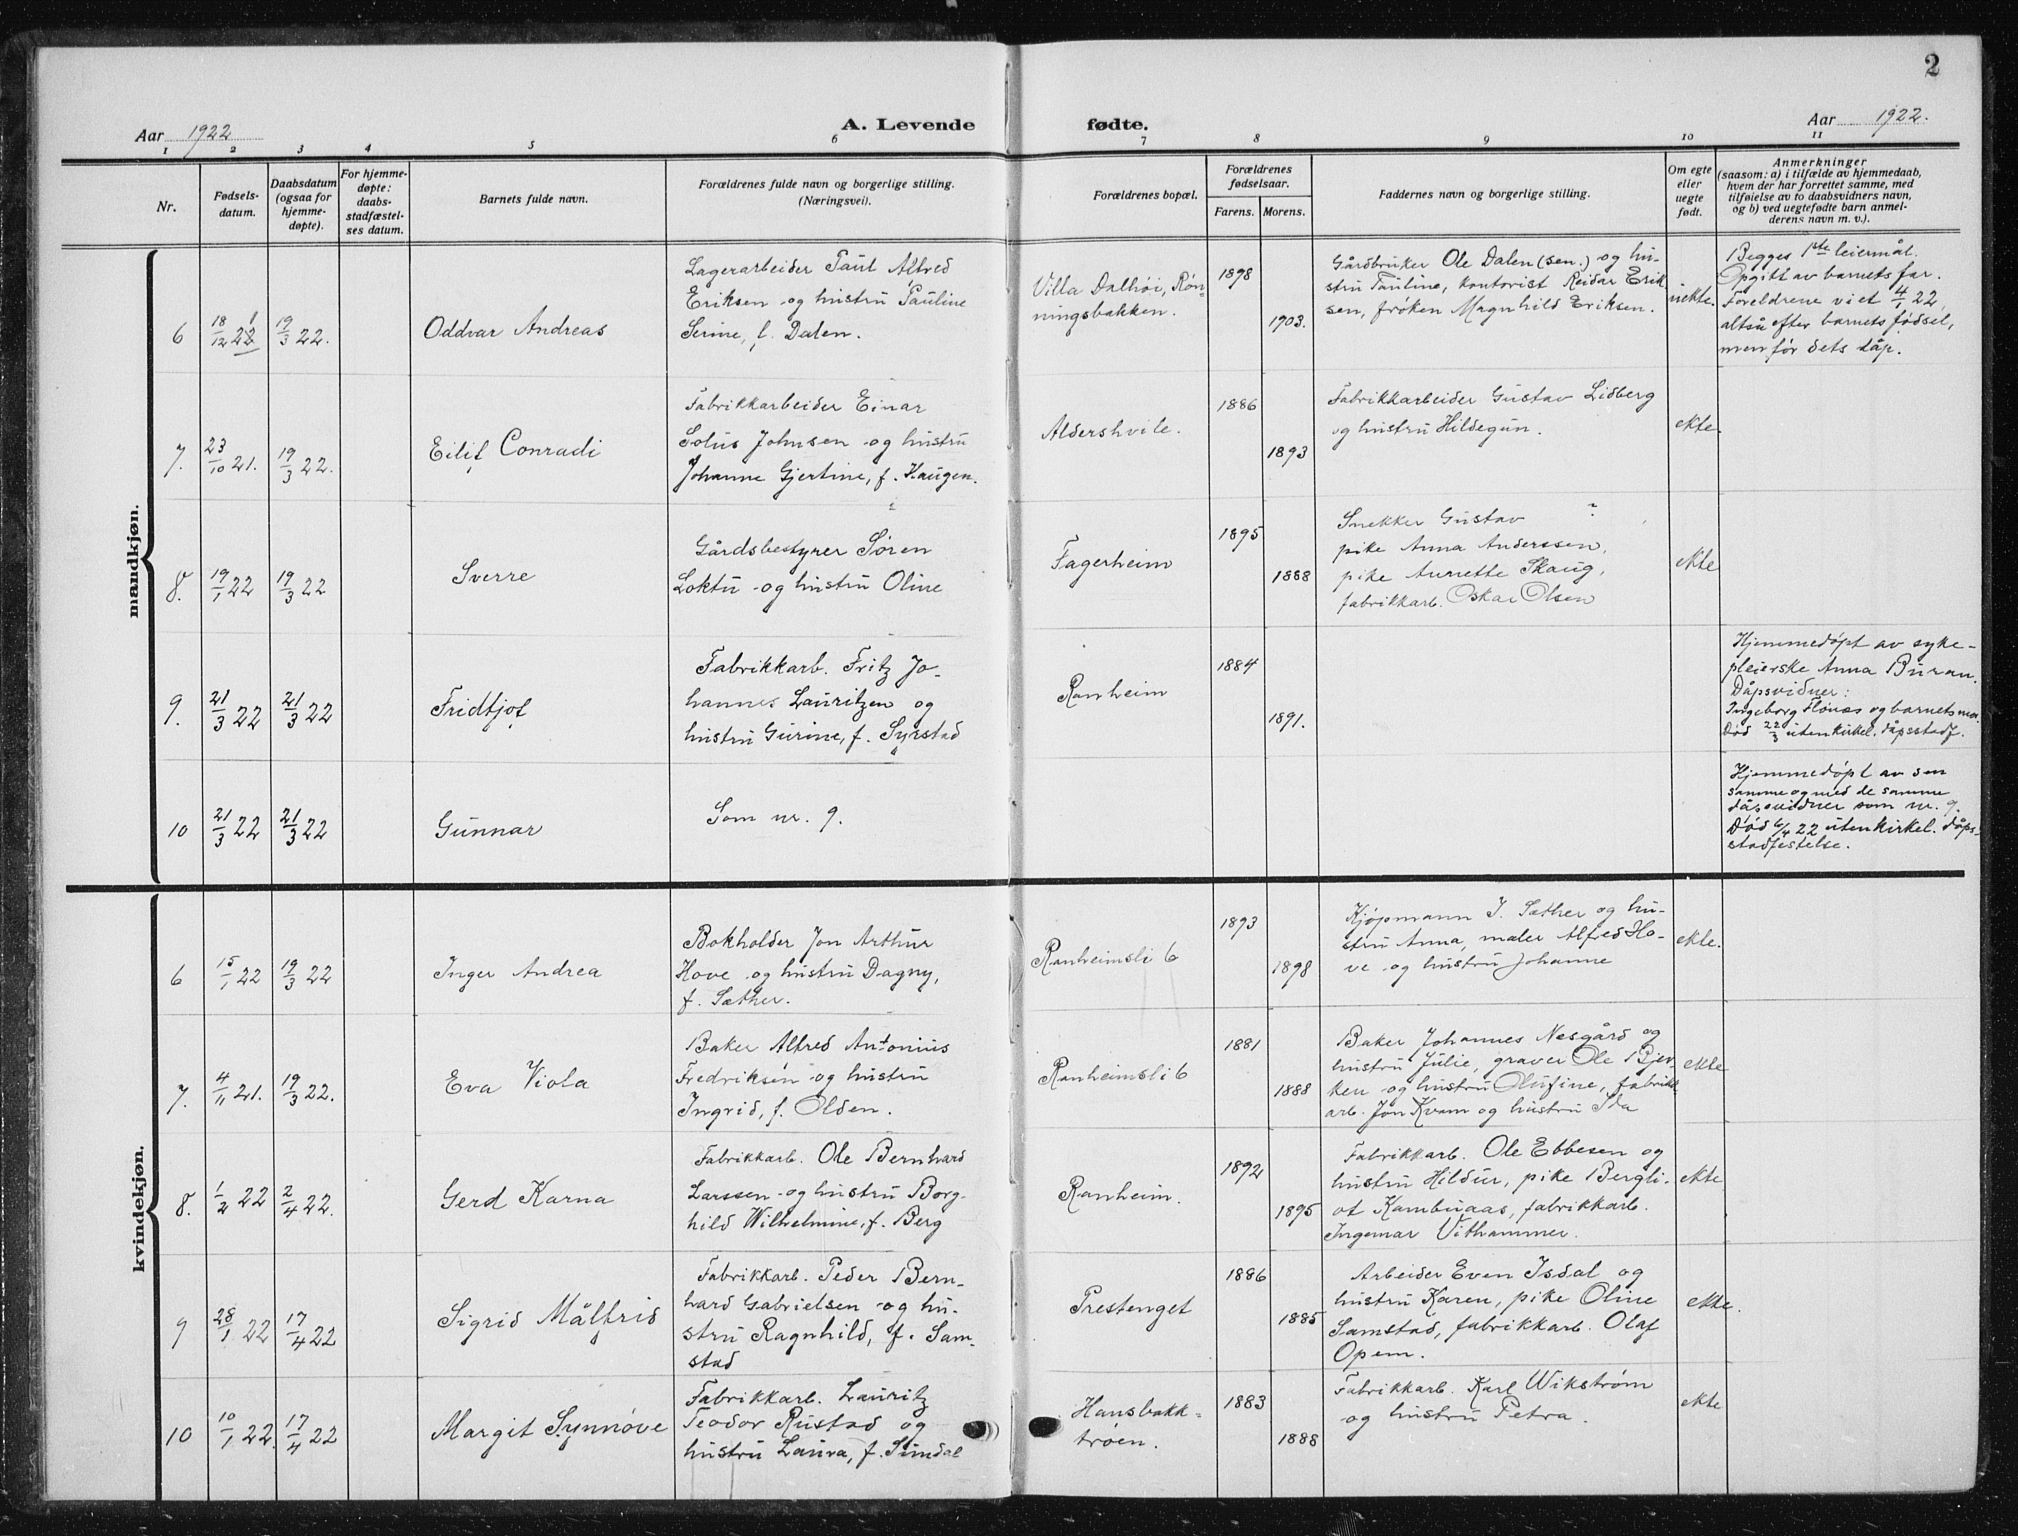 2
Aar 1922
A. Levende fødte.
Aar 1922.
1 2 3 4 5 6 7 8 9 10 11
Nr.
Fødsels-
datum.
Daabsdatum
(ogsaa for
hjemme-
døpte).
For hjemme-
døpte:
daabs-
stadfæstel-
ses datum.
Barnets fulde navn.
Forældrenes fulde navn og borgerlige stilling.
(Næringsvei).
Forældrenes bopæl.
Forældrenes
fødselsaar.
Farens. Morens.
Faddernes navn og borgerlige stilling.
Om egte
eller
uegte
født.
Anmerkninger
(saasom: a) i tilfælde av hjemmedaab,
hvem der har forrettet samme, med
tilføielse av to daabsvidners navn,
og b) ved uegtefødte barn anmel-
derens navn m. v.).
mandkjøn.
6
18/12 22
19/3 22.
Oddvar Andreas
Lagerarbeider Paul Alfred
Eriksen og hustru Pauline
Serine, f. Dalen.
Villa Dalhøi, Røn-
ningsbakken.
1898
1903.
Gårdbruker Ole Dalen (sen.) og hu-
stru Pauline, kontorist Reidar Erik
sen, frøken Magnhild Eriksen.
uekte.
Begges 1ste leiermål.
Opgitt av barnets far.
Foreldrene viet 4/1 22,
altså efter barnets fødsel,
men før dets dåp.
7.
23/10 21.
19/3 22.
Eilif Conradi
Fabrikkarbeider Einar
Solus Johnsen og hustru
Johanne Gjertine, f. Haugen.
Aldershvile.
1886
1893
Fabrikkarbeider Gustav Lidberg
og hustru Hildegun.
ekte.
8.
19/1 22
19/3 22
Sverre
Gårdsbestyrer Søren
Loktu og hustru Oline
Fagerheim
1895
1888
Snekker Gustav ?
pike Anna Anderssen,
pike Annette Skaug,
fabrikkarb. Oskar Olsen
ekte
9.
21/3 22
21/3 22
Fridtjof
Fabrikkarb. Fritz Jo-
hannes Lauritzen og
hustru Gurine, f. Syrstad
Ranheim
1884
1891.
Hjemmedøpt av syke-
pleierske Anna Buran.
Dåpsvidner:
Ingeborg Flønes og barnets mor.
Død 22/3 uten kirkel. dåpsstadf.
10
21/3 22
21/3 22
Gunnar
Som nr. 9.
Hjemmedøpt av den
samme og med de samme
dåpsvidner som nr. 9.
Død 6/4 22 uten kirkel. dåps-
stadfestelse.
kvindekjøn.
6
15/1 22
19/3 22
Inger Andrea
Bokholder Jon Arthur
Hove og hustru Dagny,
f. Sæther.
Ranheimsli 6
1893
1898
Kjøpmann J. Sæther og hu-
stru Anna, maler Alfred Ho-
ve og hustru Johanne
ekte.
7.
4/11 21.
19/3 22.
Eva Viola
Baker Alfred Antonius
Fredriksen og hustru
Ingrid, f. Olden.
Ranheimsli 6
1881
1888
Baker Johannes Nesgård og
hustru Julie, graver Ole Bjer-
ken og hustru Olufine, fabrikk
arb. Jon Kvam og hustru Ida
ekte
8.
1/2 22
2/4 22.
Gerd Karna
Fabrikkarb. Ole Bernhard
Larssen og hustru Borg-
hild Wilhelmine, f. Berg
Ranheim.
1892
1895
Fabrikkarb. Ole Ebbesen og
hustru Hildur, pike Bergli-
ot Kambuaas, fabrikkarb.
Ingemar Vithammer.
ekte
9
28/1 22
17/4 22
Sigrid Målfrid
Fabrikkarb. Peder Bern-
hard Gabrielsen og hu-
stru Ragnhild, f. Sam-
stad
Prestenget
1886
1885
Arbeider Even Isdal og
hustru Karen, pike Oline
Samstad, fabrikkarb. Olaf
Opem.
ekte.
10
10/1 22.
17/4 22
Margit Synnøve
Fabrikkarb. Lauritz
Teodor Rustad og
hustru Laura, f. Sundal
Hansbakk-
trøen.
1883
1888
Fabrikkarb. Karl Wikstrøm
og hustru Petra.
ekte